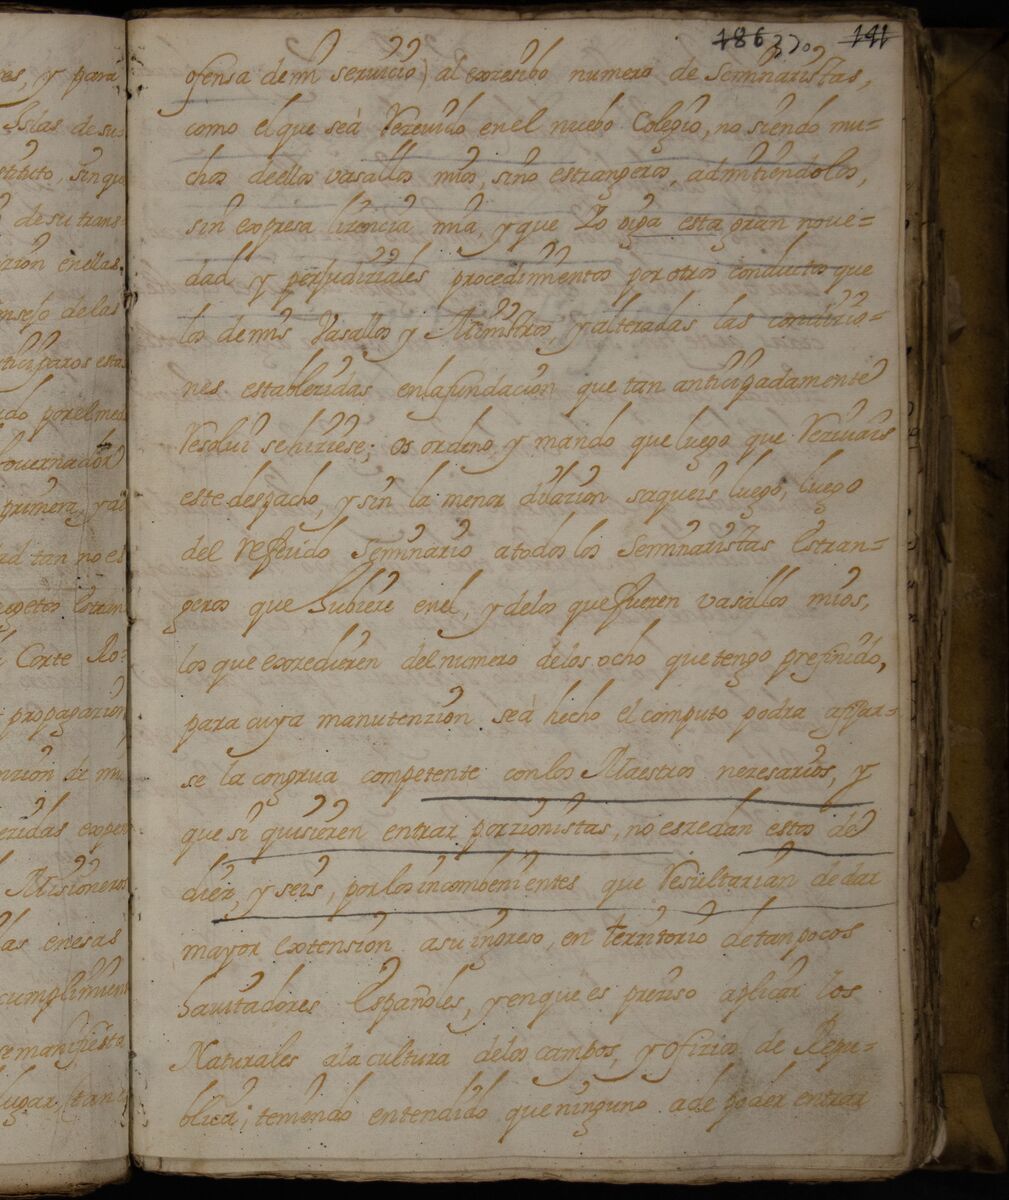 186 370 141
ofensa de mi servicio) al exzesibo numero de Seminaristas,
como el que seà Rezevido en el nuebo Colegio, no siendo mu=
chos deellos vasallos mios, sino estrangeros, admitiendolos,
sin expresa lizencia mia, y que Yo oiga esta gran nove=
dad y perjudiziales procedimientos por otros conductos que
los de mis Vasallos y Ministros, y alteradas las condizio=
nes establezidas enlafundazion que tan anticipadamente
Resolvi sehiziese; os ordeno, y mando que luego que Rezivais
este despacho, y sin la menor dilazion saqueis luego, luego
del Referido Seminario atodos los Seminaristas Estran=
geros que hubiere enel, y delos que fueren vasallos mios,
los que exzedieren del numero delos ocho que tengo prefinido,
para cuya manutenzion seà hecho el computo podra afixar=
se la congrua competente con los Maestros nezesarios, y
que si quisieren entrar porzionistas, no eszedan estos de
diez, y seis, por los incombenientes que Resultarian de dar
mayor extension asu ingreso, en territorio de tan pocos
havitadores Españoles, y en que es preziso aplicar los
Naturales ala cultura delos campos, y ofizios de Repu=
blica; teniendo entendido que ninguno a de poder entrar
es, y para
Islas de su
stituto, sin que
de su trans
zion enellas
onsejo de las
ado por el mes
Governador
primera, y al
ad tan no es
Corte Ro=
propagazion
nzion de mi
Misioneros
las enesas
cumplimient
se manifiesta
lugar, (tan